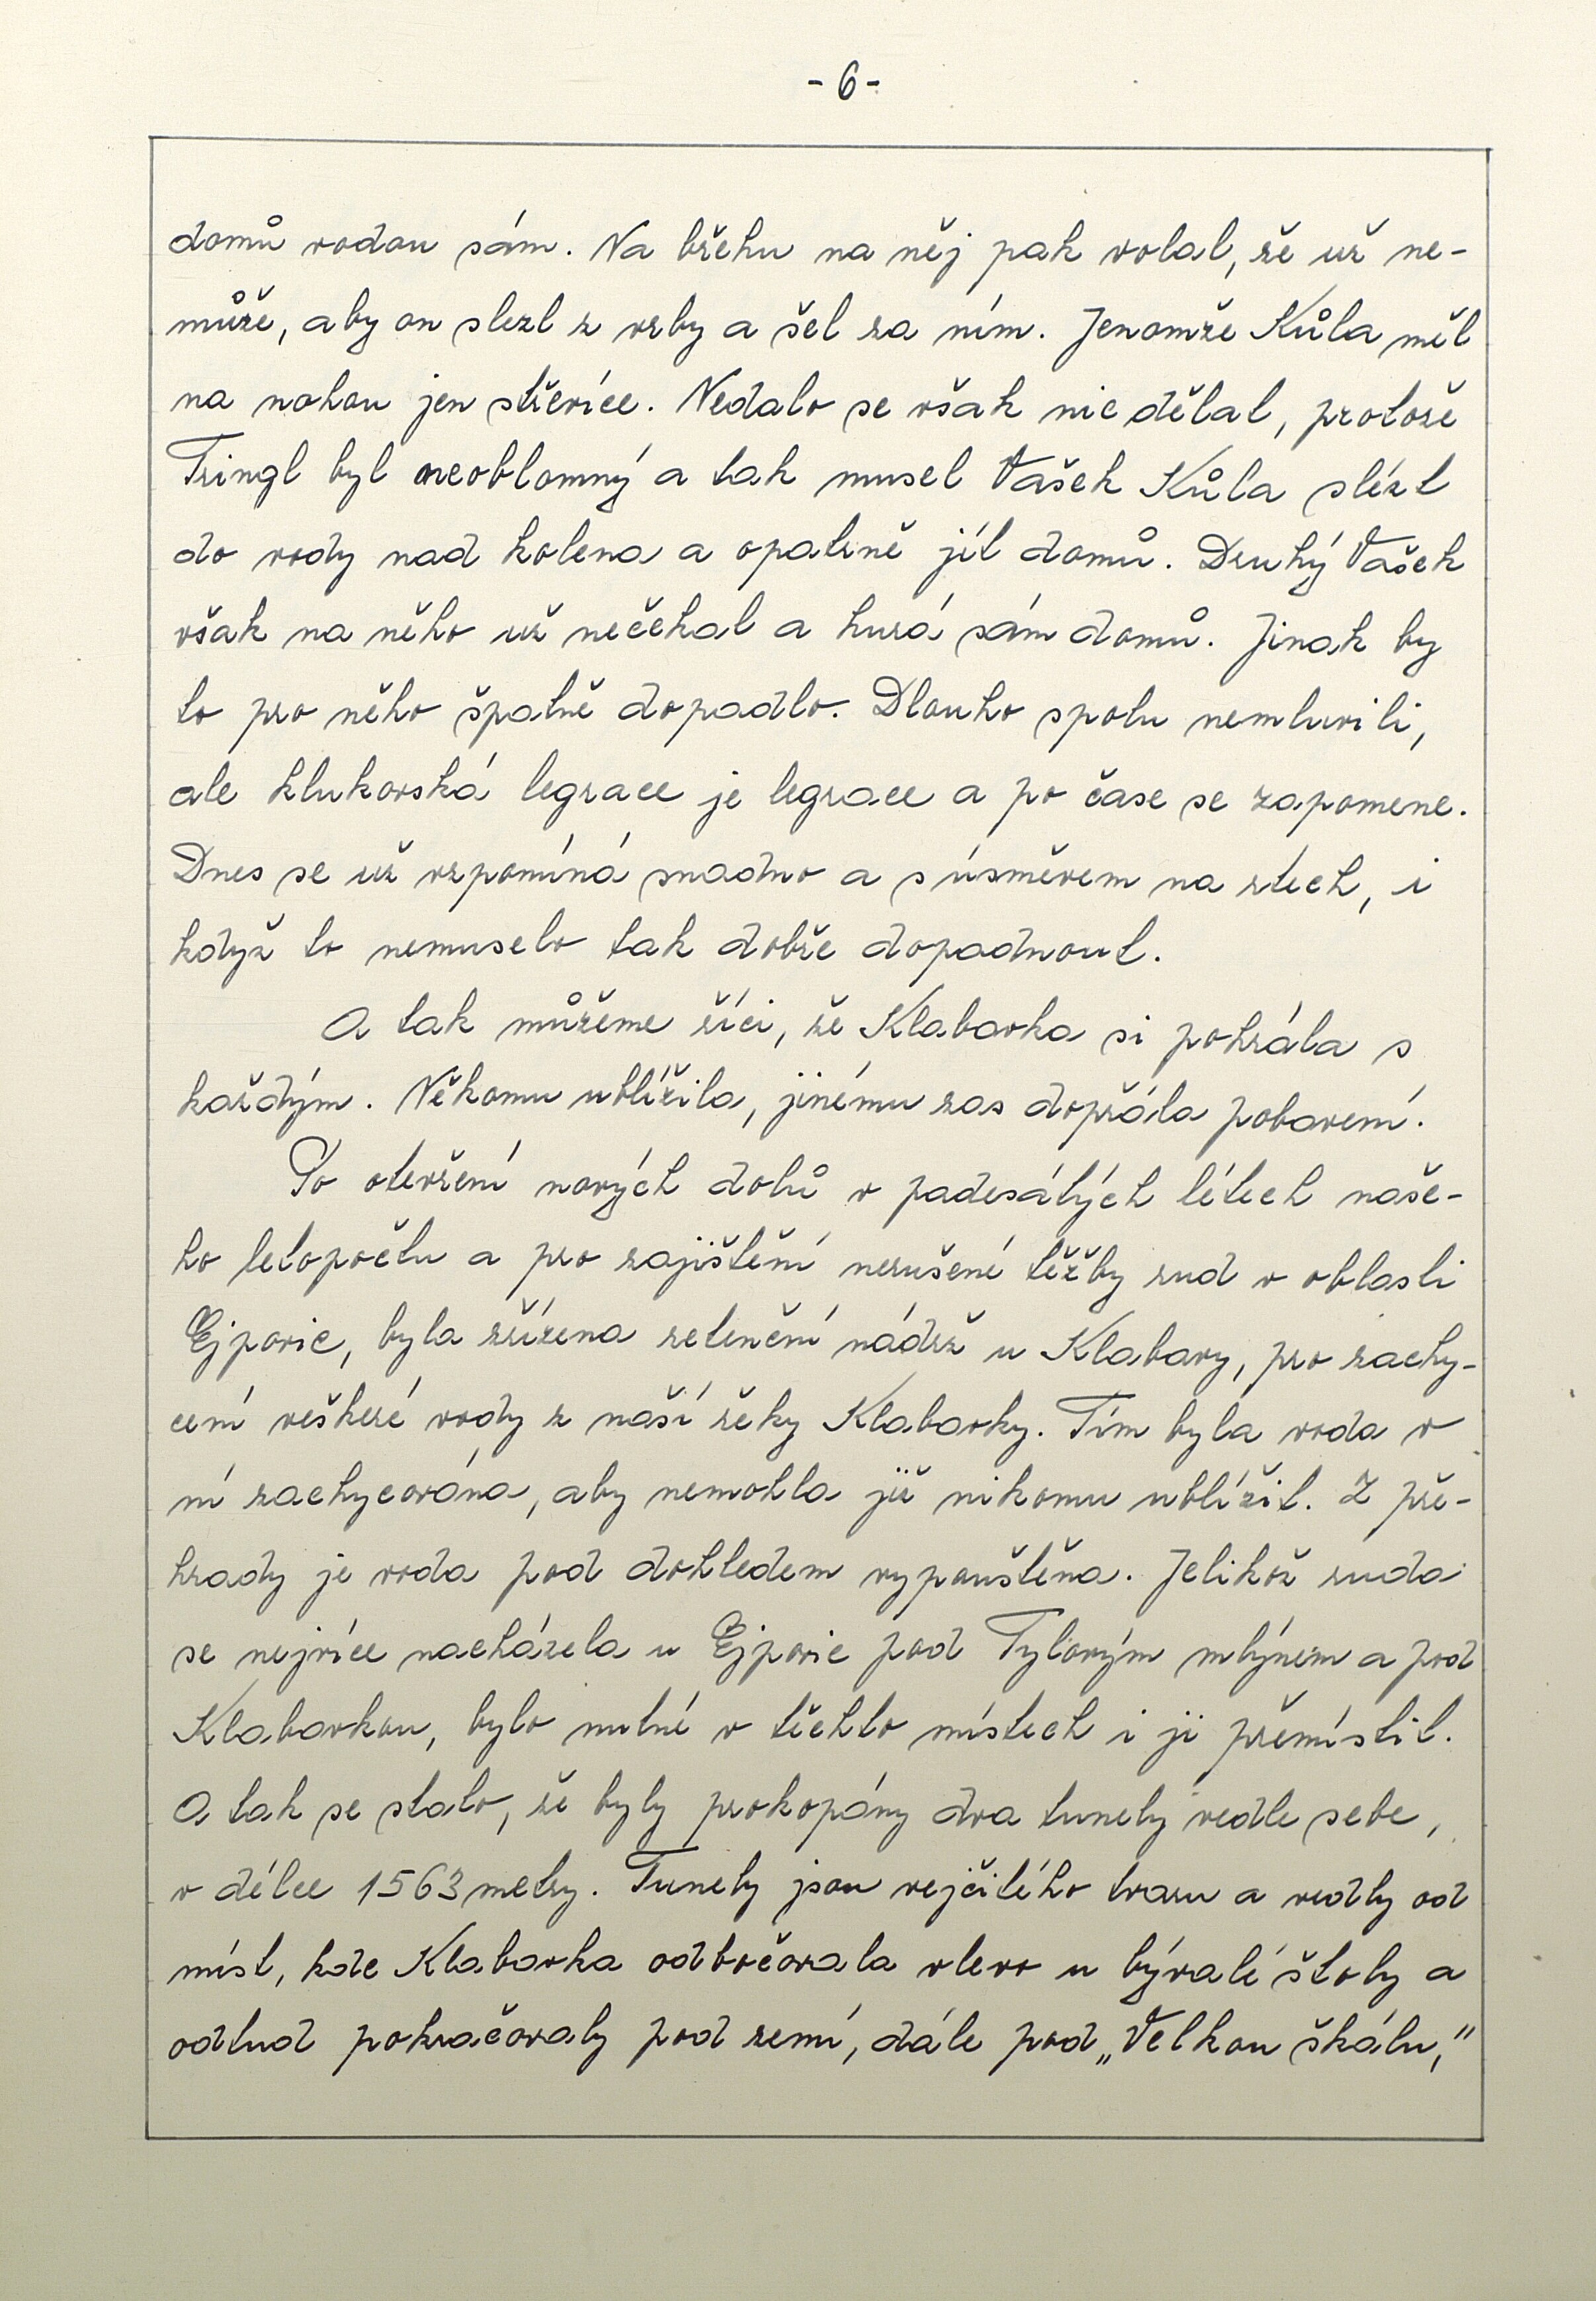 - 6 -
domů vodou sám. Na břehu na něj pak volal, že už ne-
může, aby on slezl z vrby a šel za ním. Jenomže Kůla měl
na nohou jen střevíce. Nedalo se však nic dělat, protože
Tringl byl neoblomný a tak musel Vašek Kůla slézt
do vody nad kolena a opatrně jít domů. Druhý Vašek
však na něho už nečekal a hurá sám domů. Jinak by
to pro něho špatně dopadlo. Dlouho spolu nemluvili,
ale klukovská legrace je legrace a po čase se zapomene.
Dnes se už vzpomíná snadno a s úsměvem na rtech, i
když to nemuselo tak dobře dopadnout.
A tak můžeme říci, že Klabavka si pohrála s
každým. Někomu ublížila, jinému zas dopřála pobavení.
Po otevření nových dolů v padesátých létech naše-
ho letopočtu a pro zajištění nerušené těžby rud v oblasti
Ejpovic, byla zřízena retenční nádrž u Klabavy, pro zachy-
cení veškeré vody z naší řeky Klabavky. Tím byla voda v
ní zachycována, aby nemohla již nikomu ublížit. Z pře-
hrady je voda pod dohledem vypouštěna. Jelikož ruda
se nejvíce nacházela u Ejpovic pod Tylovým mlýnem a pod
Klabavkou, bylo nutné v těchto místech i ji přemístit.
A tak se stalo, že byly prokopány dva tunely vedle sebe,
v délce 1563 metry. Tunely jsou vejčitého tvaru a vedly od
míst, kde Klabavka odbočovala vlevo u bývalé štoly a
odtud pokračovaly pod zemí, dále pod „Velkou škálu,"